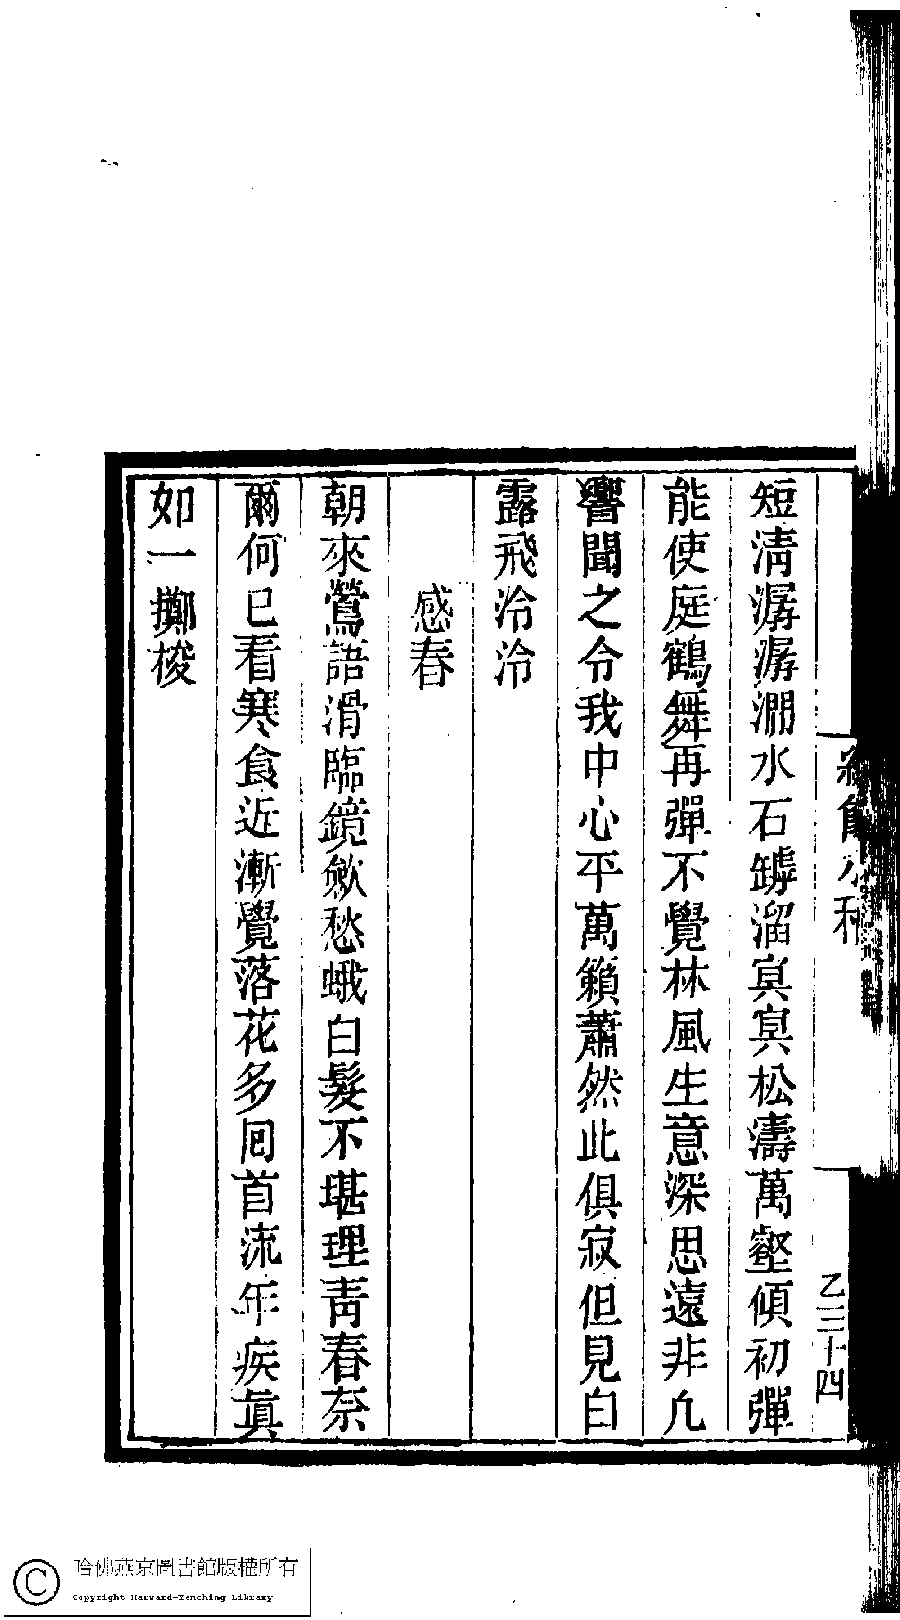 短清潺潺澗水石罅溜寘寘松濤萬壑傾初彈
能使庭鶴舞再彈不覺林風生意深思遠非凡
響聞之令我中心平萬籟蕭然此俱寂但見白
露飛泠泠
感春
朝來鶯語滑臨鏡斂愁蛾白髮不堪理靑春奈
爾何已看寒食近漸覺落花多囘首流年疾眞
如一擲梭
乙三十四
哈佛燕京圖書館版權所有
Copyright Harvard-Yenching Library